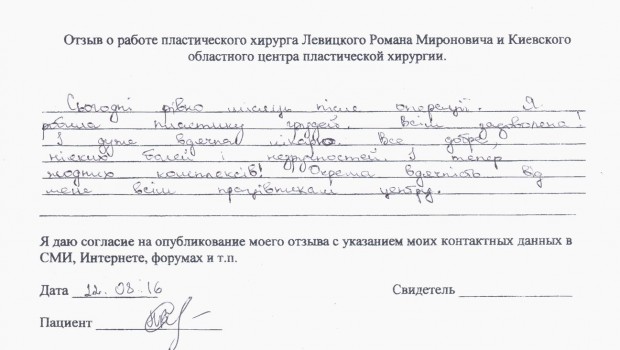 Отзыв о работе пластического хирурга Левицкого Романа Мироновича и Киевского
областного центра пластической хирургии.
Сьогодні рівно місяць після операції. Я
робила пластику грудей. Всім задоволена!
І дуже вдячна лікарю. Все добре,
ніяких болей і незручностей. І тепер
жодних комплексів! Окрема вдячність від
мене всім працівникам центру.
Я даю согласие на опубликование моего отзыва с указанием моих контактных данных в
СМИ, Интернете, форумах и т.п.
Дата 12.08.16 Свидетель
Пациент